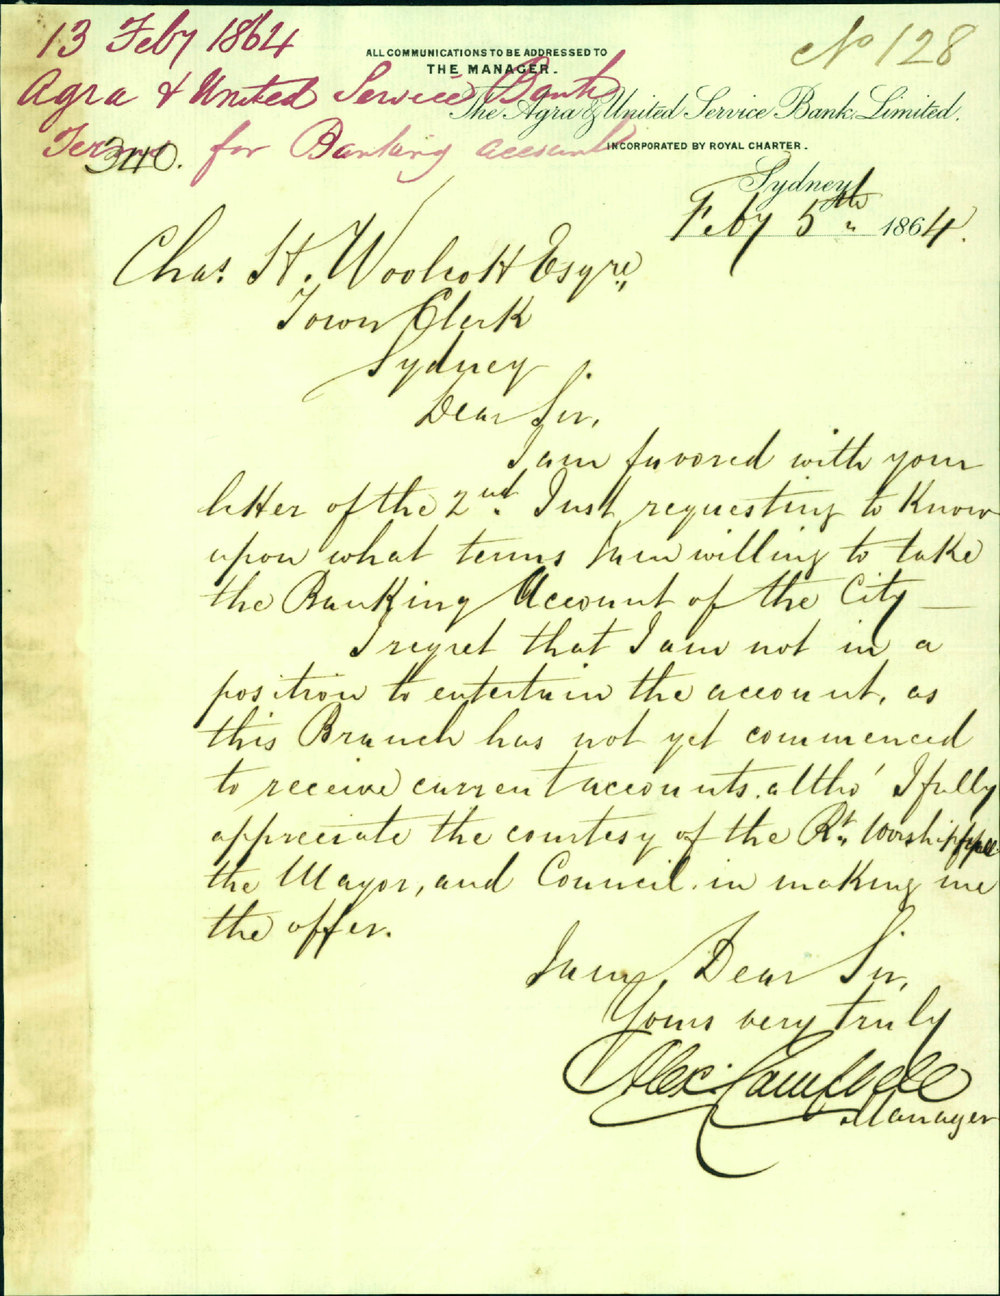 13 Feby 1864
Agra & United Service Bank
Terms for Banking account
340.
No 128
ALL COMMUNICATIONS TO BE ADDRESSED TO
THE MANAGER.
The Agra & United Service Bank, Limited.
INCORPORATED BY ROYAL CHARTER.
Sydney
Feby 5th 1864.
Chas. H. Woolcott Esqre.,
Town Clerk
Sydney
Dear Sir,
I am favored with your
letter of the 2nd. Inst, requesting to know
upon what terms I am willing to take
the Banking Account of the City —
I regret that I am not in a
position to entertain the account, as
this Branch has not yet commenced
to receive current accounts. altho' I fully
appreciate the courtesy of the Rt. Worshipfull
the Mayor, and Council. in making me
the offer.
I am, Dear Sir,
Yours very truly
Alex. Campbell
Manager